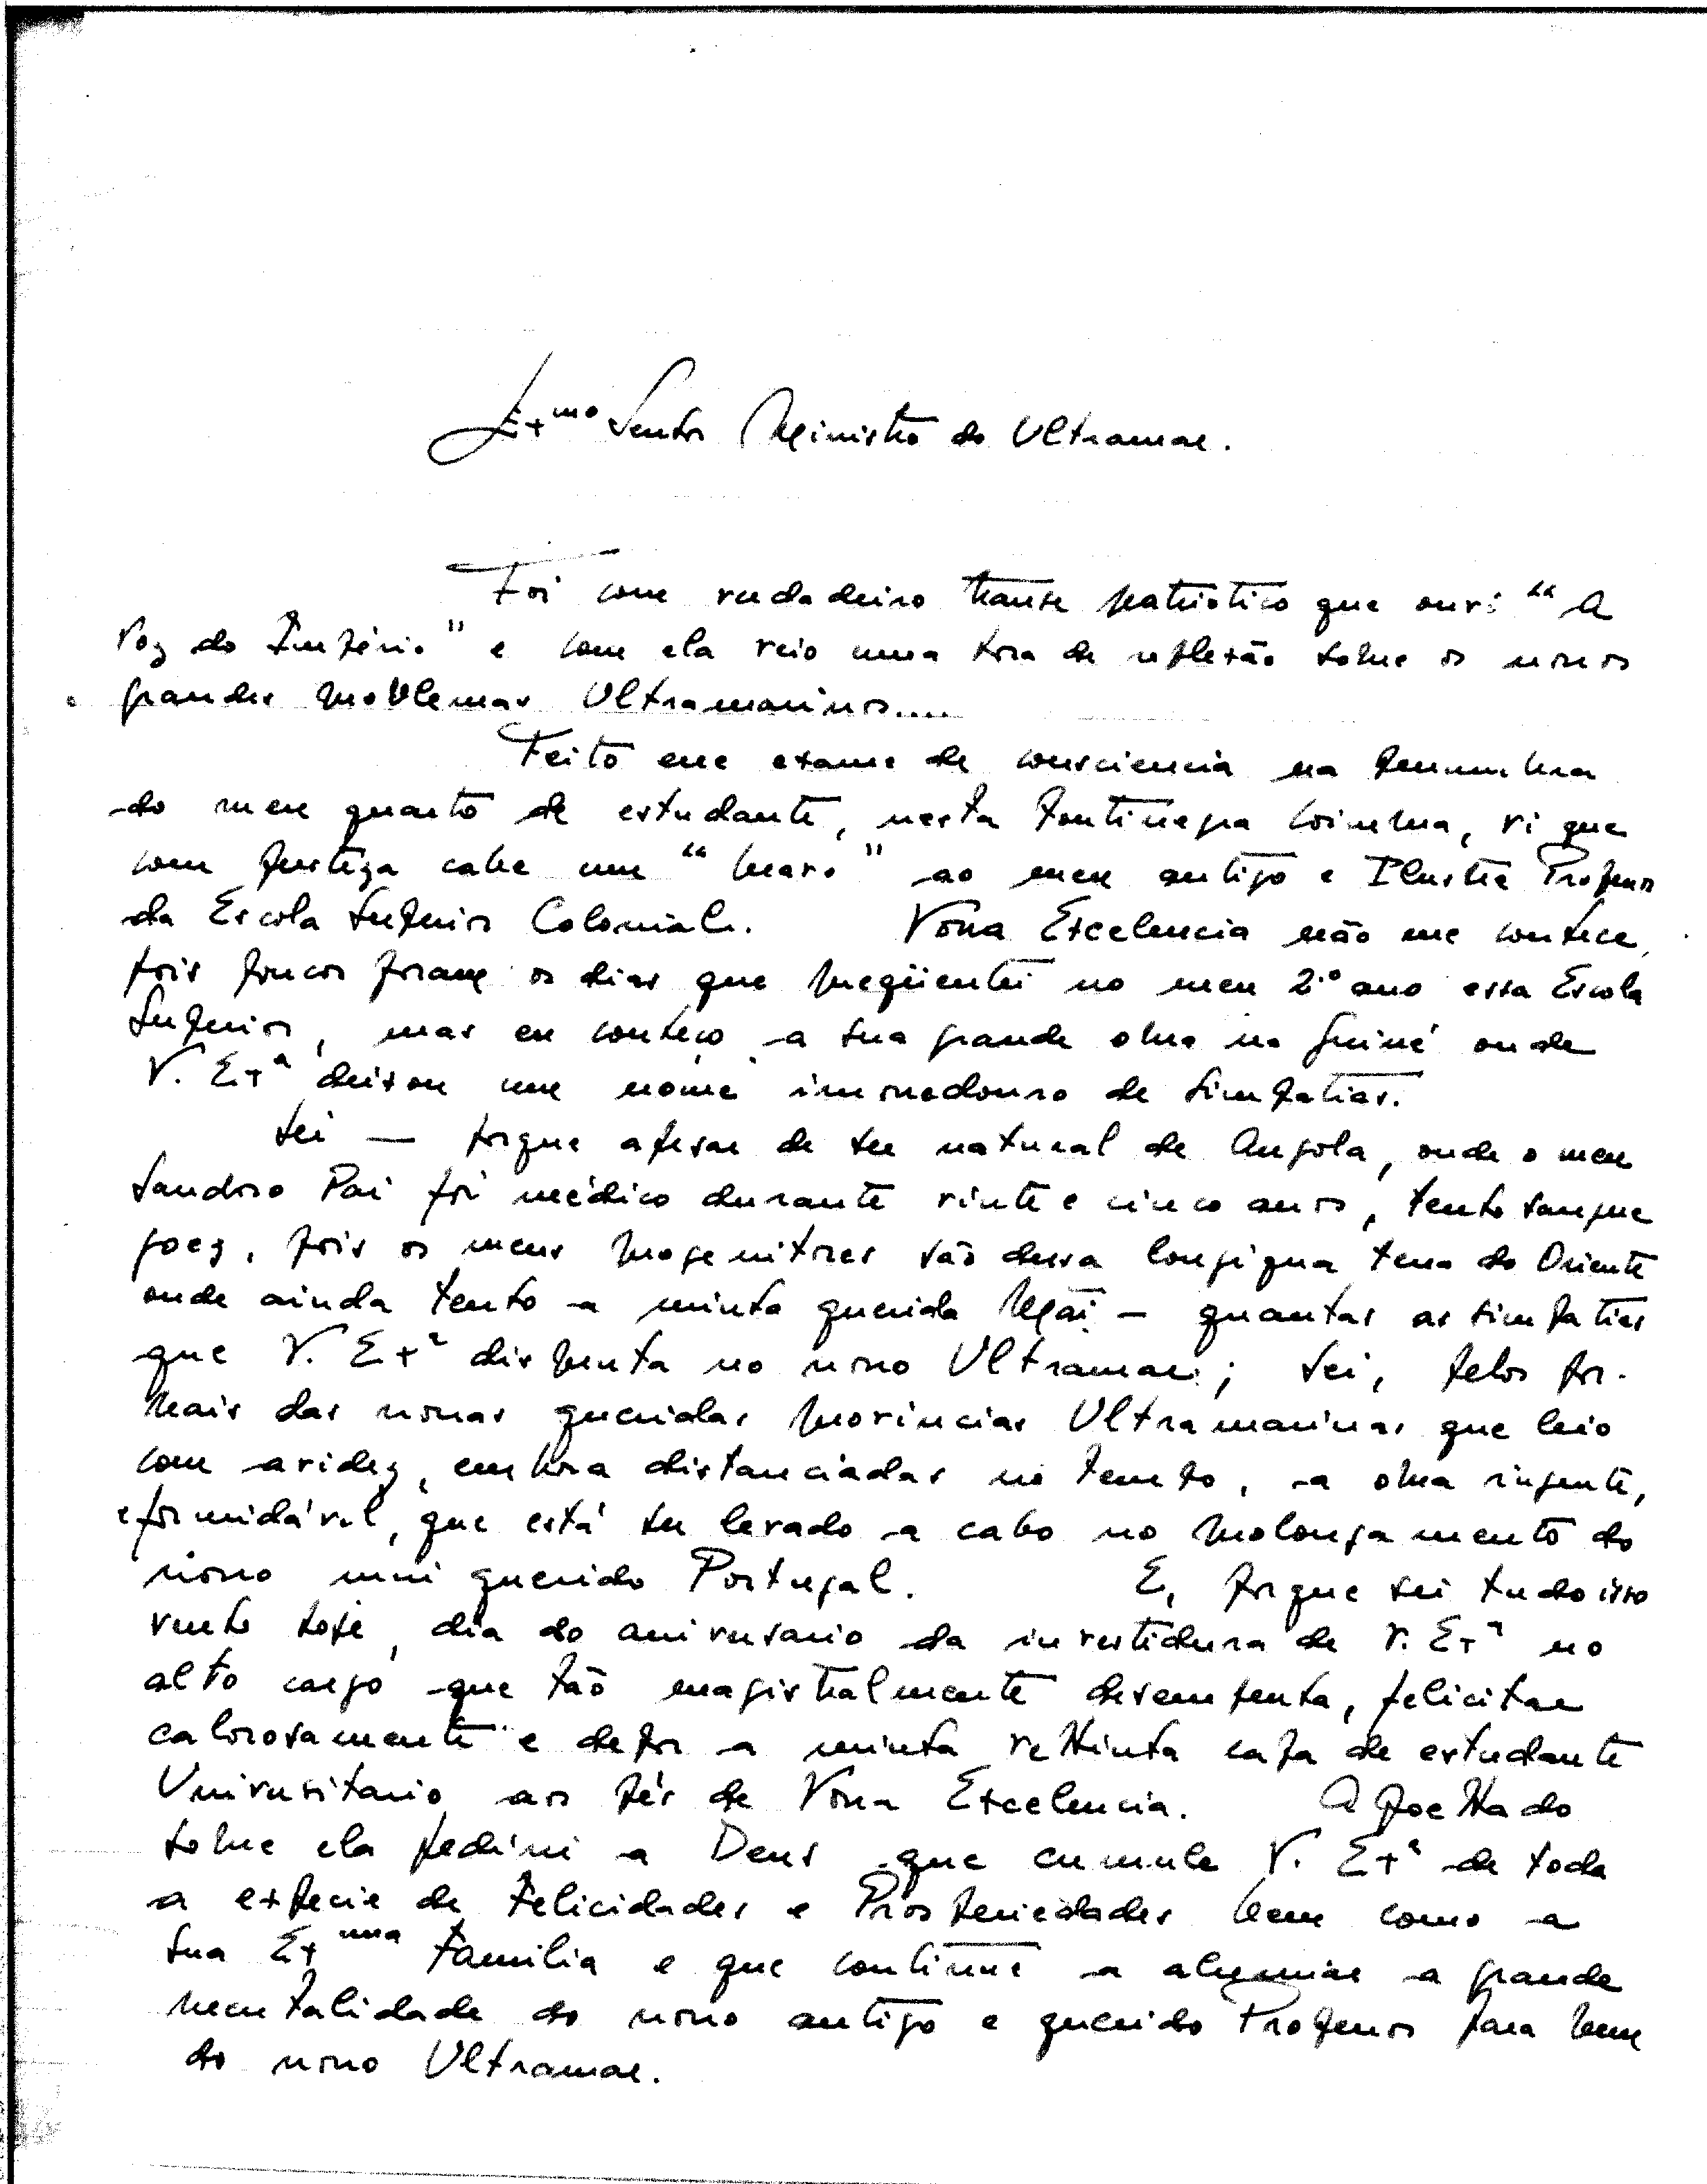 Exmo Senhor Ministro do Ultramar.
Foi com verdadeiro transe patriotico que ouvi "A
Voz do Império" e com ela veio uma hora de reflexão sobre os nossos
grandes problemas Ultramarinos....
Feito em exame de consciencia na penumbra
do meu quarto de estudante, nesta Coimbra, vi que
com justeza cabe um "bravo" ao meu antigo e Ilustre Professor
da Escola Superior Colonial. Vossa Excelencia não me conhece,
pois poucos foram os dias que freqüentei no meu 2.º ano essa Escola
Superior, mas eu conheço a sua grande obra na Guiné onde
V. Exª deixou um nome imorredouro de simpatias.
Sei — porque apesar de ser natural de Angola, onde o meu
saudoso Pai foi médico durante vinte e cinco anos, tenho sangue
goez, pois os meus progenitores são dessa longiqua terra do Oriente
onde ainda tenho a minha querida Mãi — quantas as simpatias
que V. Exª disfruta no nosso Ultramar; sei, pelos jor-
nais das nossas queridas provincias Ultramarinas que leio
com avidez, embora distanciadas no tempo, a obra ingente,
e formidável, que está ser levado a cabo no prolongamento do
nosso mui querido Portugal. E, porque sei tudo isso
venho hoje, dia do aniversario da investidura de V. Exª no
alto cargo que tão magistralmente desempenha, felicitar
calorosamente e depor a minha capa de estudante
Universitario aos pés de Vossa Excelencia. Ajoelhado
sobre ela pedirei a Deus que cumule V. Exª de toda
a especie de Felicidades e Prosperiedades bem como a
sua Exma Familia e que continue a alumiar a grande
mentalidade do nosso antigo e querido Professor para bem
do nosso Ultramar.